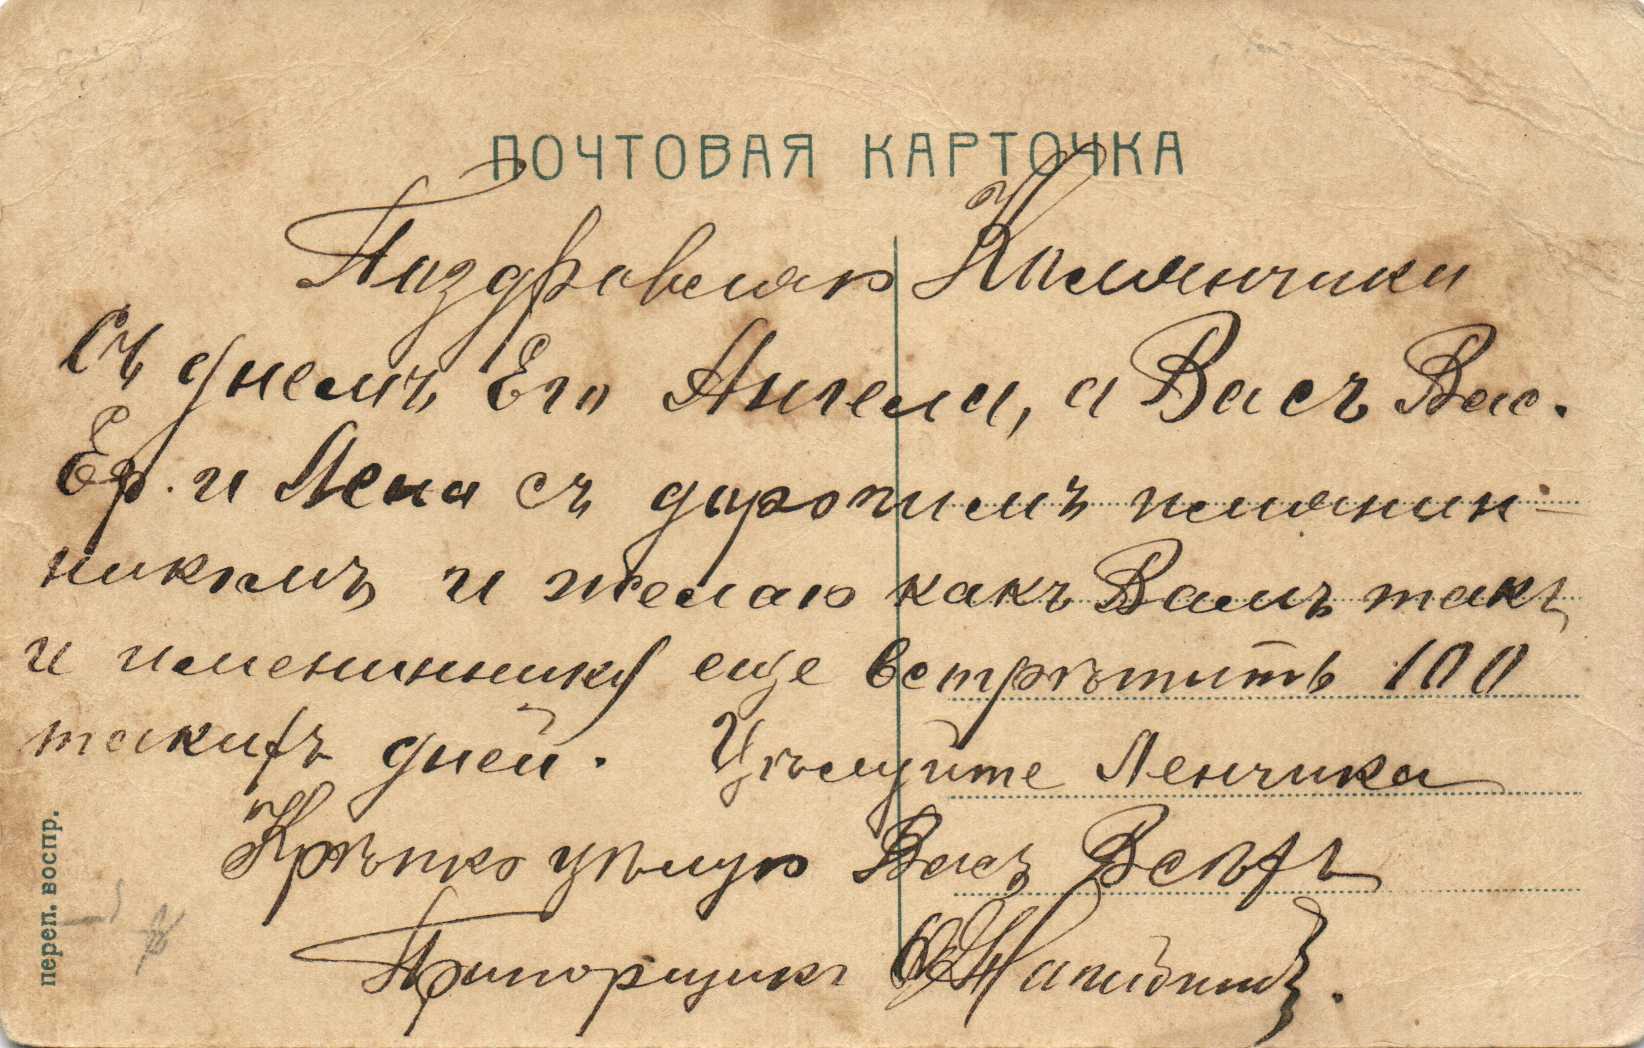 ПОЧТОВАЯ КАРТОЧКА
Поздравляю Колянчика
Съ днемъ Его Ангела, а Васъ Вас.
Ер. и Лена съ дорогимъ имянин-
никомъ и желаю какъ Вамъ такъ
и именинику еще встрѣтить 100
такихъ дней. Цѣлуйте Ленчика
Крѣпко цѣлую Васъ Всѣхъ
Прапорщикъ
переп. воспр.